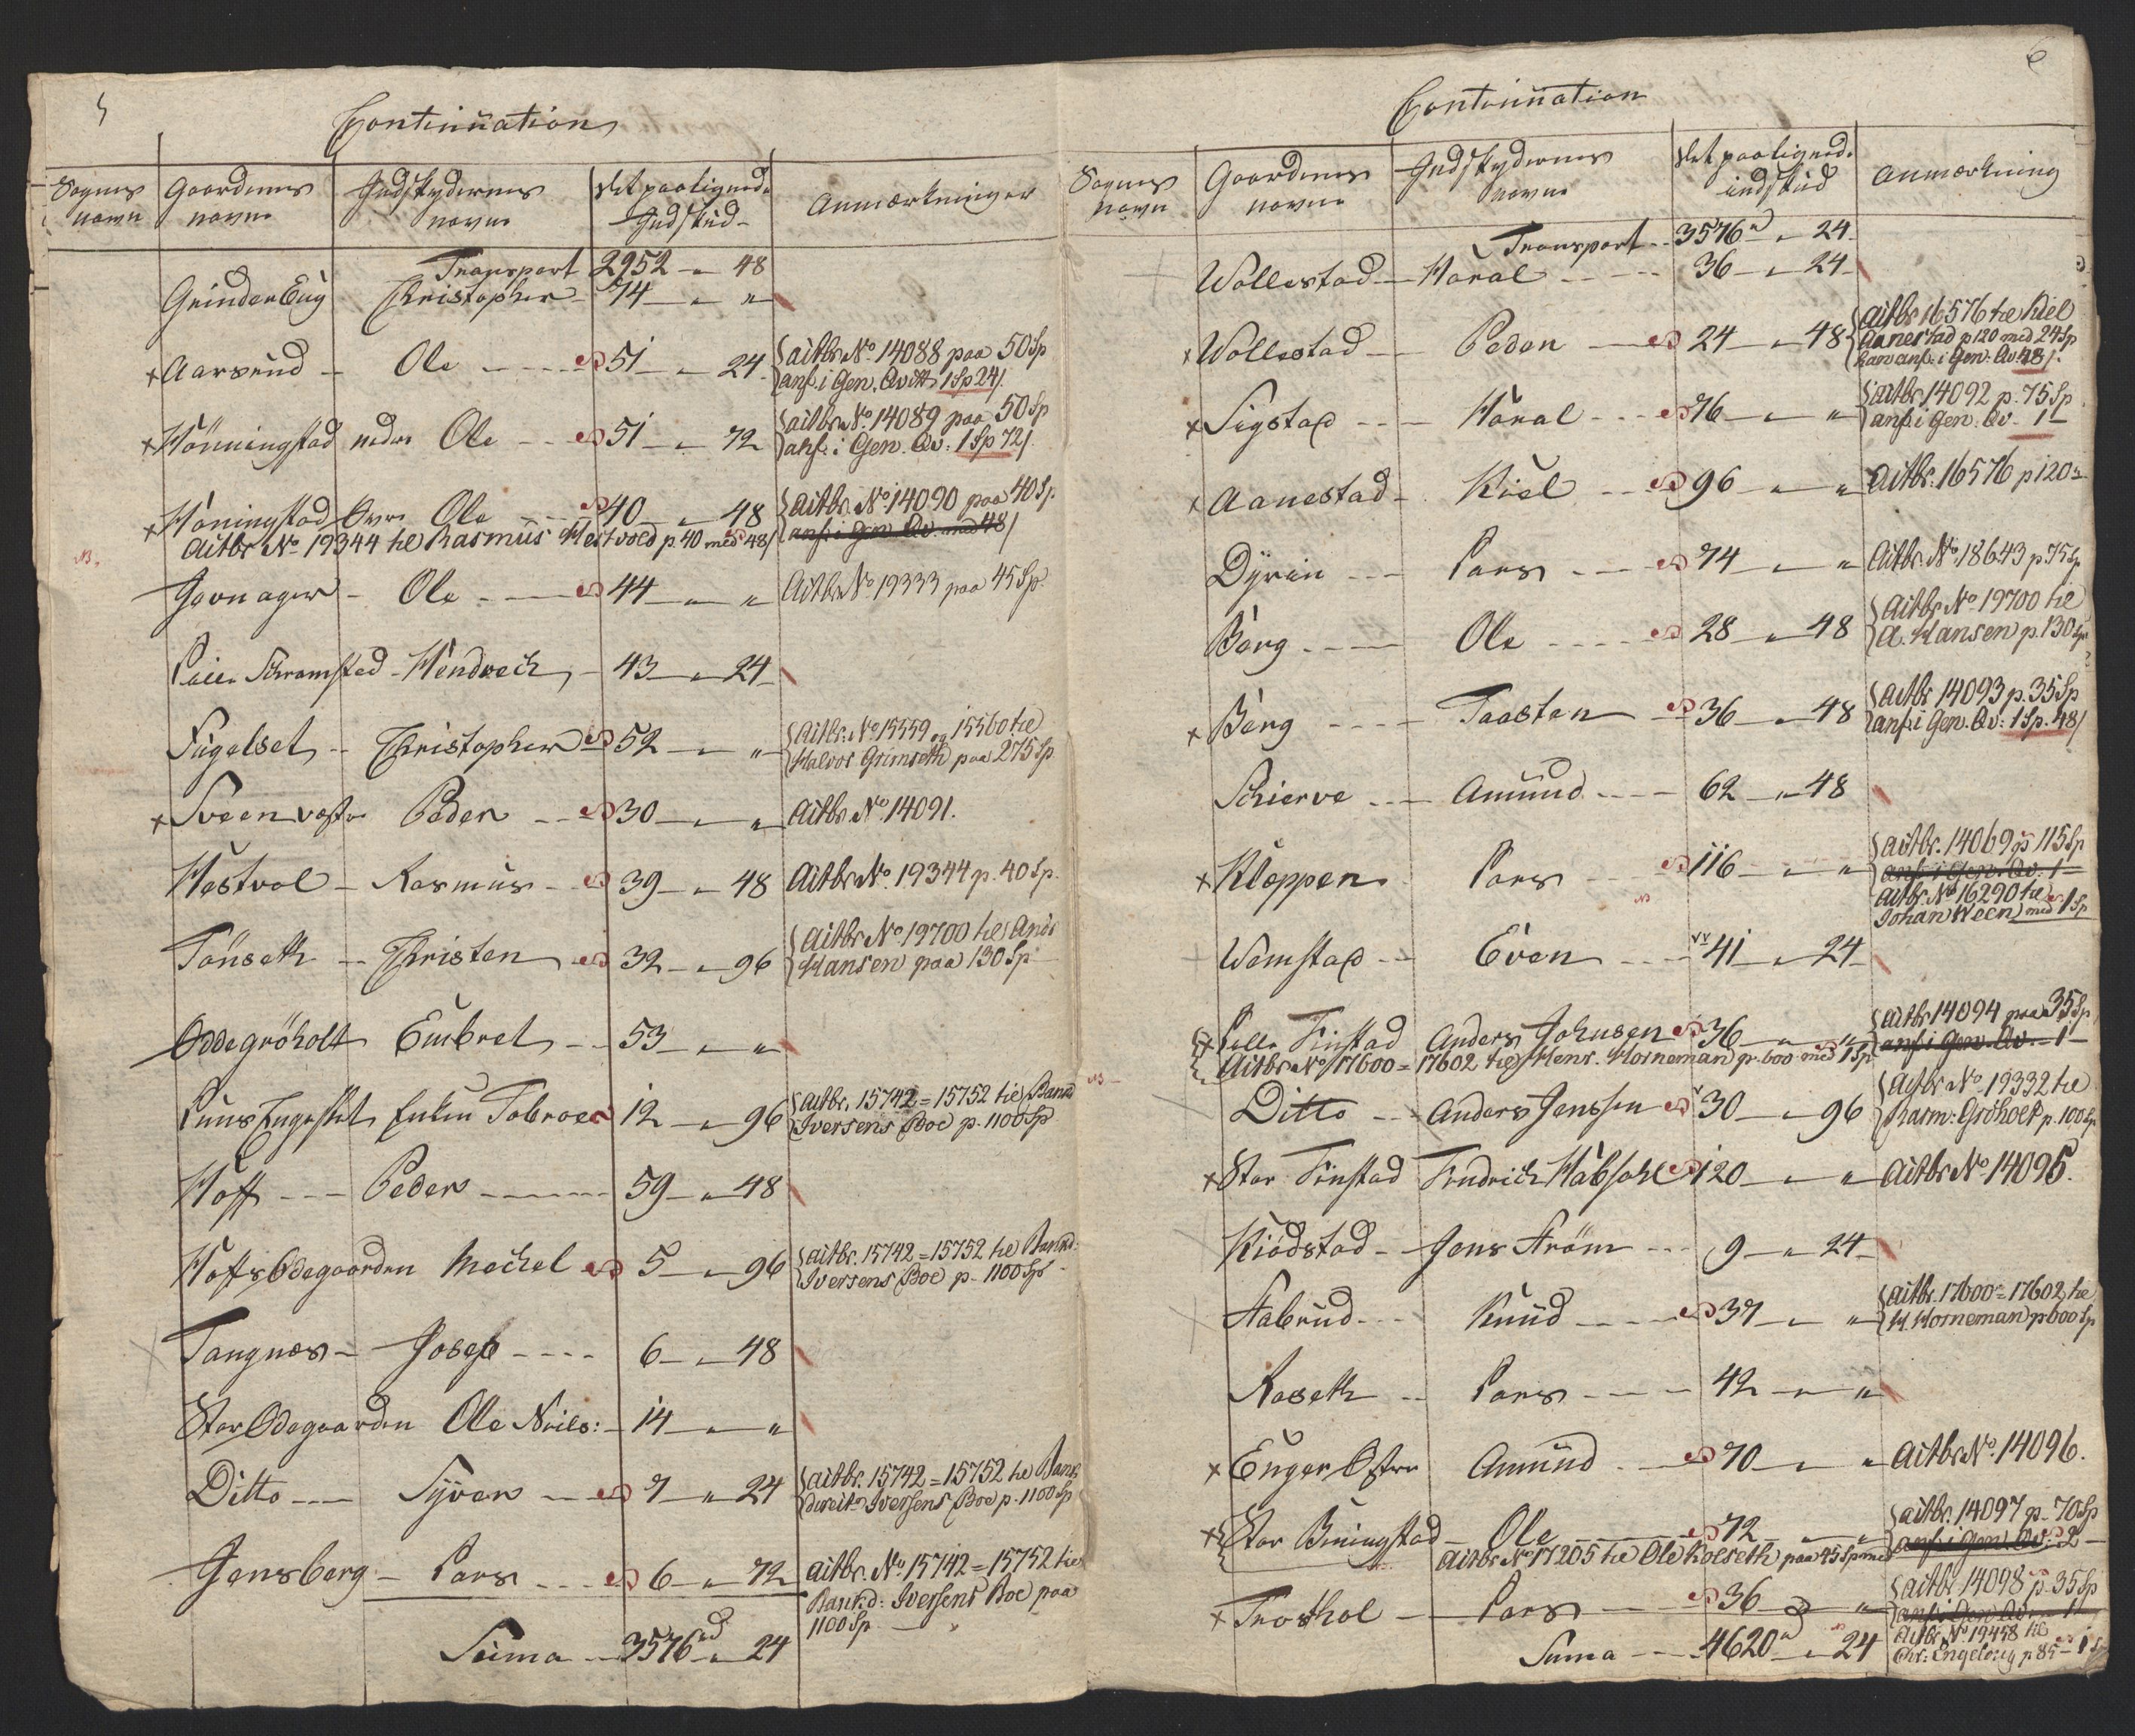 5
Continuation
Sognes navn | Gaardenes navne | Indskydernes navne | Det paalignede Indskud | Anmærkninger
Transport 2952 - " 48
Grinder Eng Christopher 74 - " "
x Aarsrud - Ole - 51 - " 24 aitbr No. 14088 paa 50 Sp
anf. i Gen. Qvitt 1 Sp 24/
x Hönningstad nedre Ole - 51 - " 72 aitbr No. 14089 paa 50 Sp
anf. i Gen. Qv: 1 Sp 72/
x Höningstad Øvre Ole 40 - " 48 aitbr. No 14090 paa 40 Sp.
anf. i Gen Qv. med 48/
NB. Aitbr No 19344 til Rasmus Hestvold p. 40 med 48/
Gavnager - Ole - 44 - " " Aitbr No 19333 paa 45 Sp.
Schramstad - Hendrech - 43 - " 24
Fugelset - Christopher 52 - " " Aitbr. No 15559 og 15560 til
Halvor Grimseth paa 275 Sp.
x Sveen vestre Peder - 30 - " " aitbr No. 14091.
Hestvol - Rasmus - 39 - " 48 Aitbr No. 19344 p. 40 Sp.
Tönseth - Christen 32 - " 96 Aitbr No. 19700 til And:
Hansen paa 130 Sp
Oddegröholt Embret - 53 - " "
Tobroe 12 - " 96 aitbr. 15742 = 15752 til Bankd
Iversens Boe p. 1100 Sp
Hoff - Peder - 59 - " 48
Hoffs Ødegaarden Mechel 5 - " 96 aitbr. 15742 = 15752 til Bankd:
Iversens Boe p. 1100 Sp
Tangnæs - Josep - 6 - " 48
Stor Ødegaarden Ole Niels: 14 - " "
Ditto - Syver - 7 - " 24 aitbr. 15742 = 15752 til Bank
direkt. Iversens Boe p. 1100 Sp
Jensberg - Lars - 6 - " 72 aitbr. No. 15742 = 15752 til
Bankd: Iversens Boe paa
1100 Sp
Suma - 3576 rd " 24
6
Continuation
Sognes navn | Gaardenes navne | Indskydernes navne | Det paalignede indskud | Anmærkning
Transport - 3576 rd " 24
Wollestad - Haral - 36 - " 24
x Wollestad - Peder - 24 - " 48 aitbr 16576 til Kiel
Aanestad p 120 med 24 Sp
anf: i Gen. Qv 48/.
x Sigstad - Haral - 76 - " " aitbr 14092 p. 75 Sp
anf. i Gen. Qv - 1 -
x Aanestad - Kiel - 96 - " " Aitbr. 16576 p 120
Dyrin - Lars - 74 - " " Aitbr. No. 18643 p. 75 Sp
Berg - Ole - 28 - " 48 Aitbr No 19700 til
A. Hansen p. 130 Sp
x Berg - Taasten - 36 - " 48 aitbr 14093 p. 35 Sp
anf. i Gen. Qv: 1 Sp. 48/
Schierve - Amund - 62 - " 48
x Kloppen Lars - 116 - " " aitbr. 14069 p 115 Sp
anf. i Gen. Qv. 1 -
NB Aitbr. No 16290 til
Johan Ween med 1 Sp
Wemstad - Even - 41 - " 24
x Lille Finstad Anders Johnsen 36 - " " aitbr 14094 paa 35 Sp
anf. i Gen. Qv. - 1 -
Aitbr No 17600 = 17602 til Henr. Horneman p. 600 med 1 Sp
NB Ditto - Anders Jenssen 30 - " 96 Aitbr No 19332 til
Rasm: Gröholt p. 100 Sp
x Stor Finstad Fredrich Habsohl 120 - " " Aitbr No 14095.
Kiödstad - Jens Ström - 9 - " 24
Stabrud - Knud - 37 - " " aitbr. 17600 = 17602 til
H. Horneman p 600 Sp
Raseth - Lars - 42 - " "
x Enger Østre Amund - 70 - " " Aitbr No. 14096.
x Stor Biningstad - Ole - 72 - " " aitbr. 14097 p. 70 Sp
anf i Gen Qv: 2 -
Aitbr No 17205 til Ole Kolseth paa 45 Sp med
x Trosthol - Lars - 36 - " " aitbr 14098 p. 35 Sp
anf. i Gen Qv. - 1 -
Aitbr. No 19458 til
Chr: Engebrig p 85 - 1 Sp
Suma - 4620 rd " 24